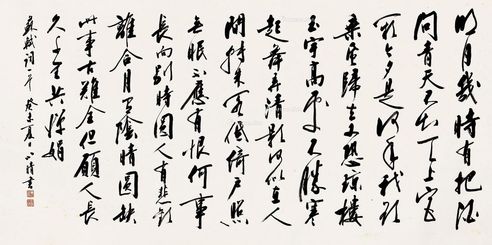 明月幾時有把酒
问青天不知天上宫
阙今夕是何年我欲
乘風歸去又恐琼樓
玉宇高处不勝寒
起舞弄清影何似在人
間转朱阁低绮户照
無眠不應有恨何事
長向别時圆人有悲歡
離合月有陰晴圓缺
此事古難全但願人長
久千里共嬋娟
蘇軾詞一首 癸未夏日 書